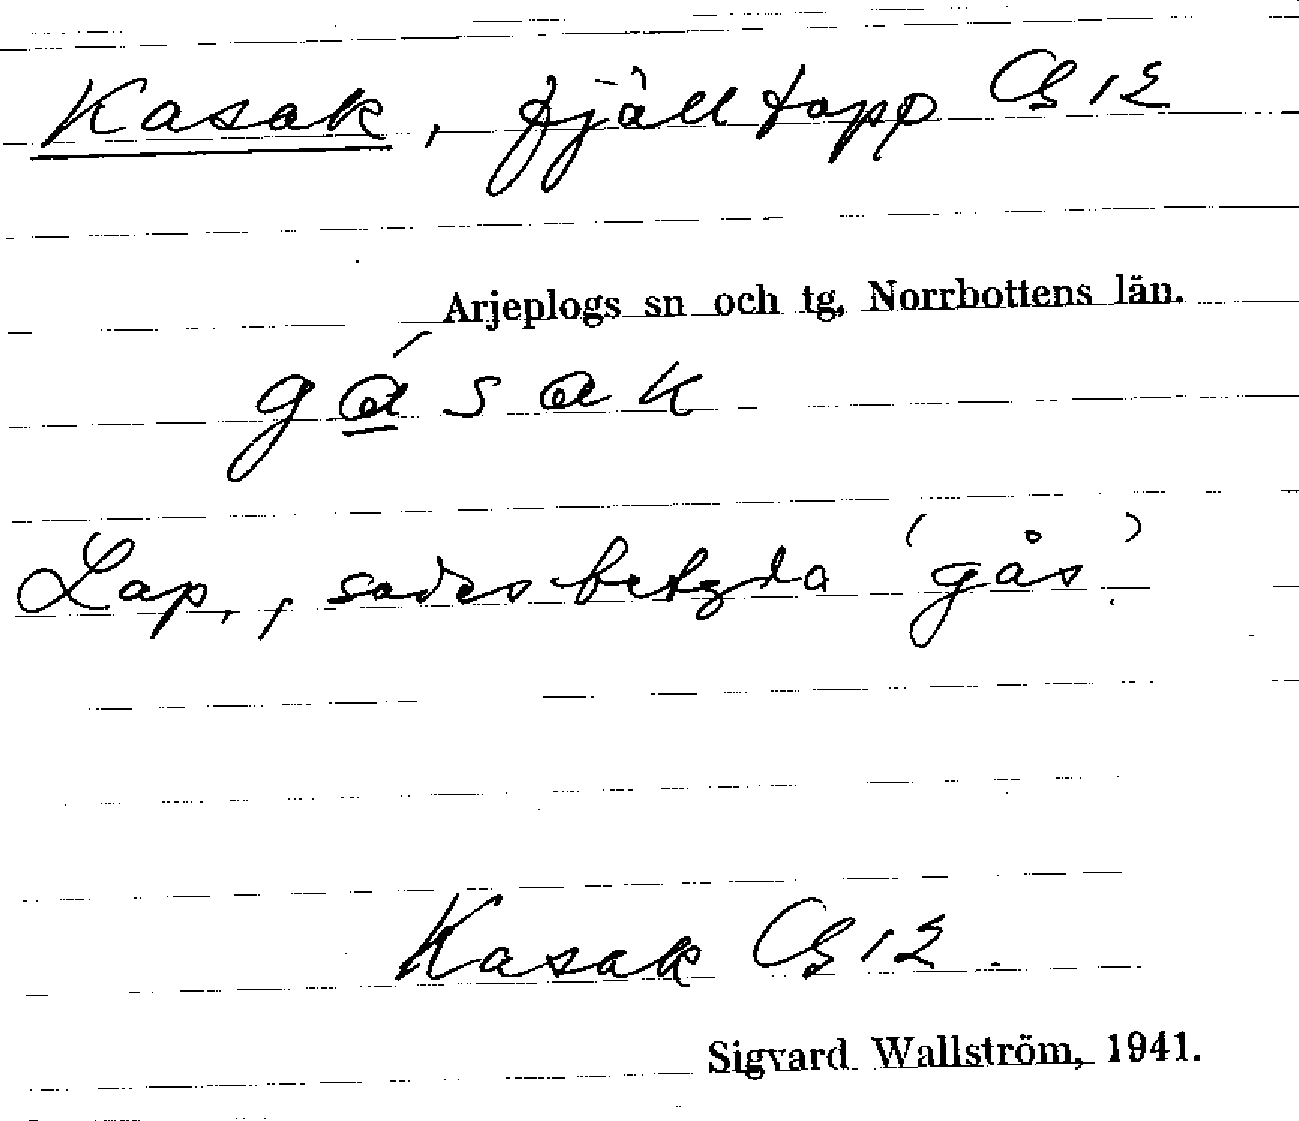 Kasak, fjälltopp GS 12
Arjeplogs sn och tg, Norrbottens län.
gásak
Lap., sades betyda 'gås'.
Kasak GS 12
Sigvard Wallström, 1941.